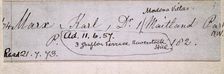 Modena Villas
Marx Karl, Dr. 1 Maitland Park
Add. 11.6.57.
3 Grafton Terrace, Haverstock Hill 182.
21.7.73.